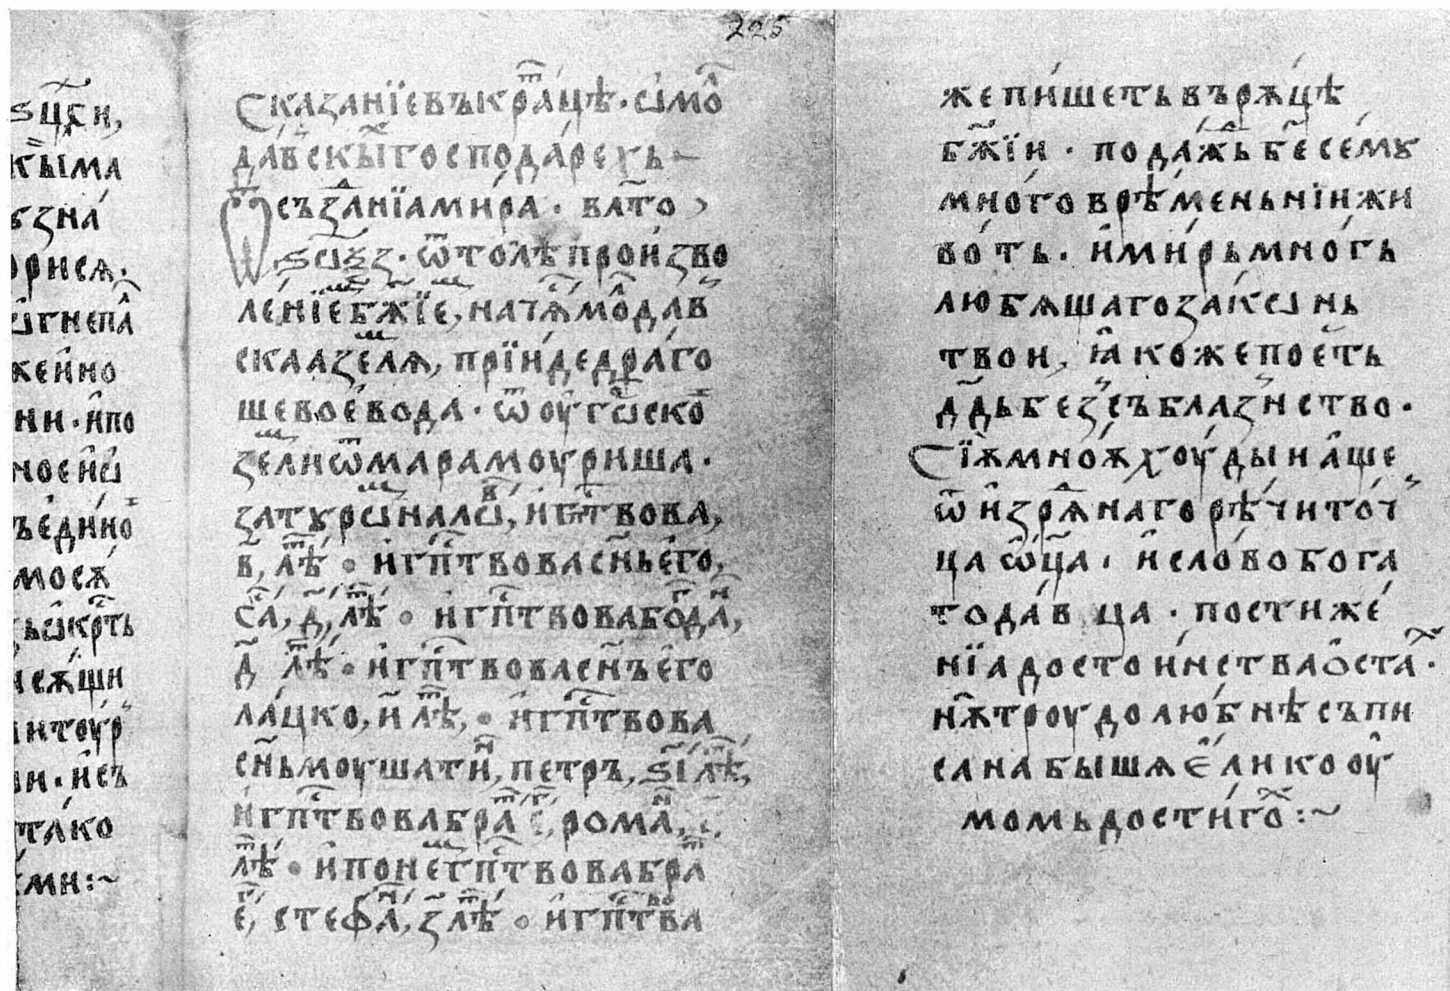 225
ѕцс҃и,
кыима
ꙋзна́
орисѧ.
ѡ҆гнепⷧа
жен̑но
ни · и҆по
ноен̑ѡ
ъеди́но
мосѧ́
ьѡ҆крⷭ҇ть
исѫщи
интоур
ни · и҆съ
та́ко
ми :~
Сказанїевъкрⷮа́цѣ · ѡ҆моⷧ
да́вскыⷯгосподарехь –
Ѿсъзⷣанїами́ра · влⷮѣто
҂ѕѡ҃ѯз · ѿто́лѣпрои́зво
ле́нїебж҃їе, начѧⷭмоⷧдав
скааземлѧ, прїи́дедра́го
шевоево́да · ѿоу҆гѡⷬскоⷨ
земⷧиѿмарамоуриша ·
затꙋрѡмⷩало́вⷨ, и҆гпⷭтвова,
в҃, лⷮѣ · и҆гпⷭтвовасн҃ьего,
саⷭ, д҃, лⷮѣ · и҆гпⷭтвовабоⷢдаⷩ,
д҃ лⷮѣ · и҆гпⷭтвовасн҃ъего
ла́цко, и҃ лⷮѣ, · и҆гпⷭтвова
сн҃ьмоушатиⷩ, петръ, ѕ҃і лⷮѣ,
и҆гпⷭтвовабраⷮ е҆гⷪ, ромаⷩ,
лⷮѣ · и҆понемⷨгпⷭтвовабраⷮ
еⷢ, стефаⷩ, з҃ лⷮѣ · и҆гпⷭтвⷪва
жепи́шетьвърѫ́цѣ
бж҃їи · пода́жⷣь бж҃есемꙋ
мно́говрѣ́меньнїижи
во́ть · и҆ми́рьмно́гь
любѧщагозако́нь
твои, ꙗ҆кожепое́ть
дⷣдьбезсъблазнство ·
Сїѫмноѫхоу́дыи҆а҆ще
ѿи҆зрѧⷣнагорѣ́чито́ч
цаѿц҃а, и҆сло́вобога
тода́вца · постиже́
нїадостои́нстваѡ҆стаⷯ ·
нѫ̑троудолю́бнѣсъпи
санабышѧе҆ли́кооу҆
момьдости́гоⷯ :~